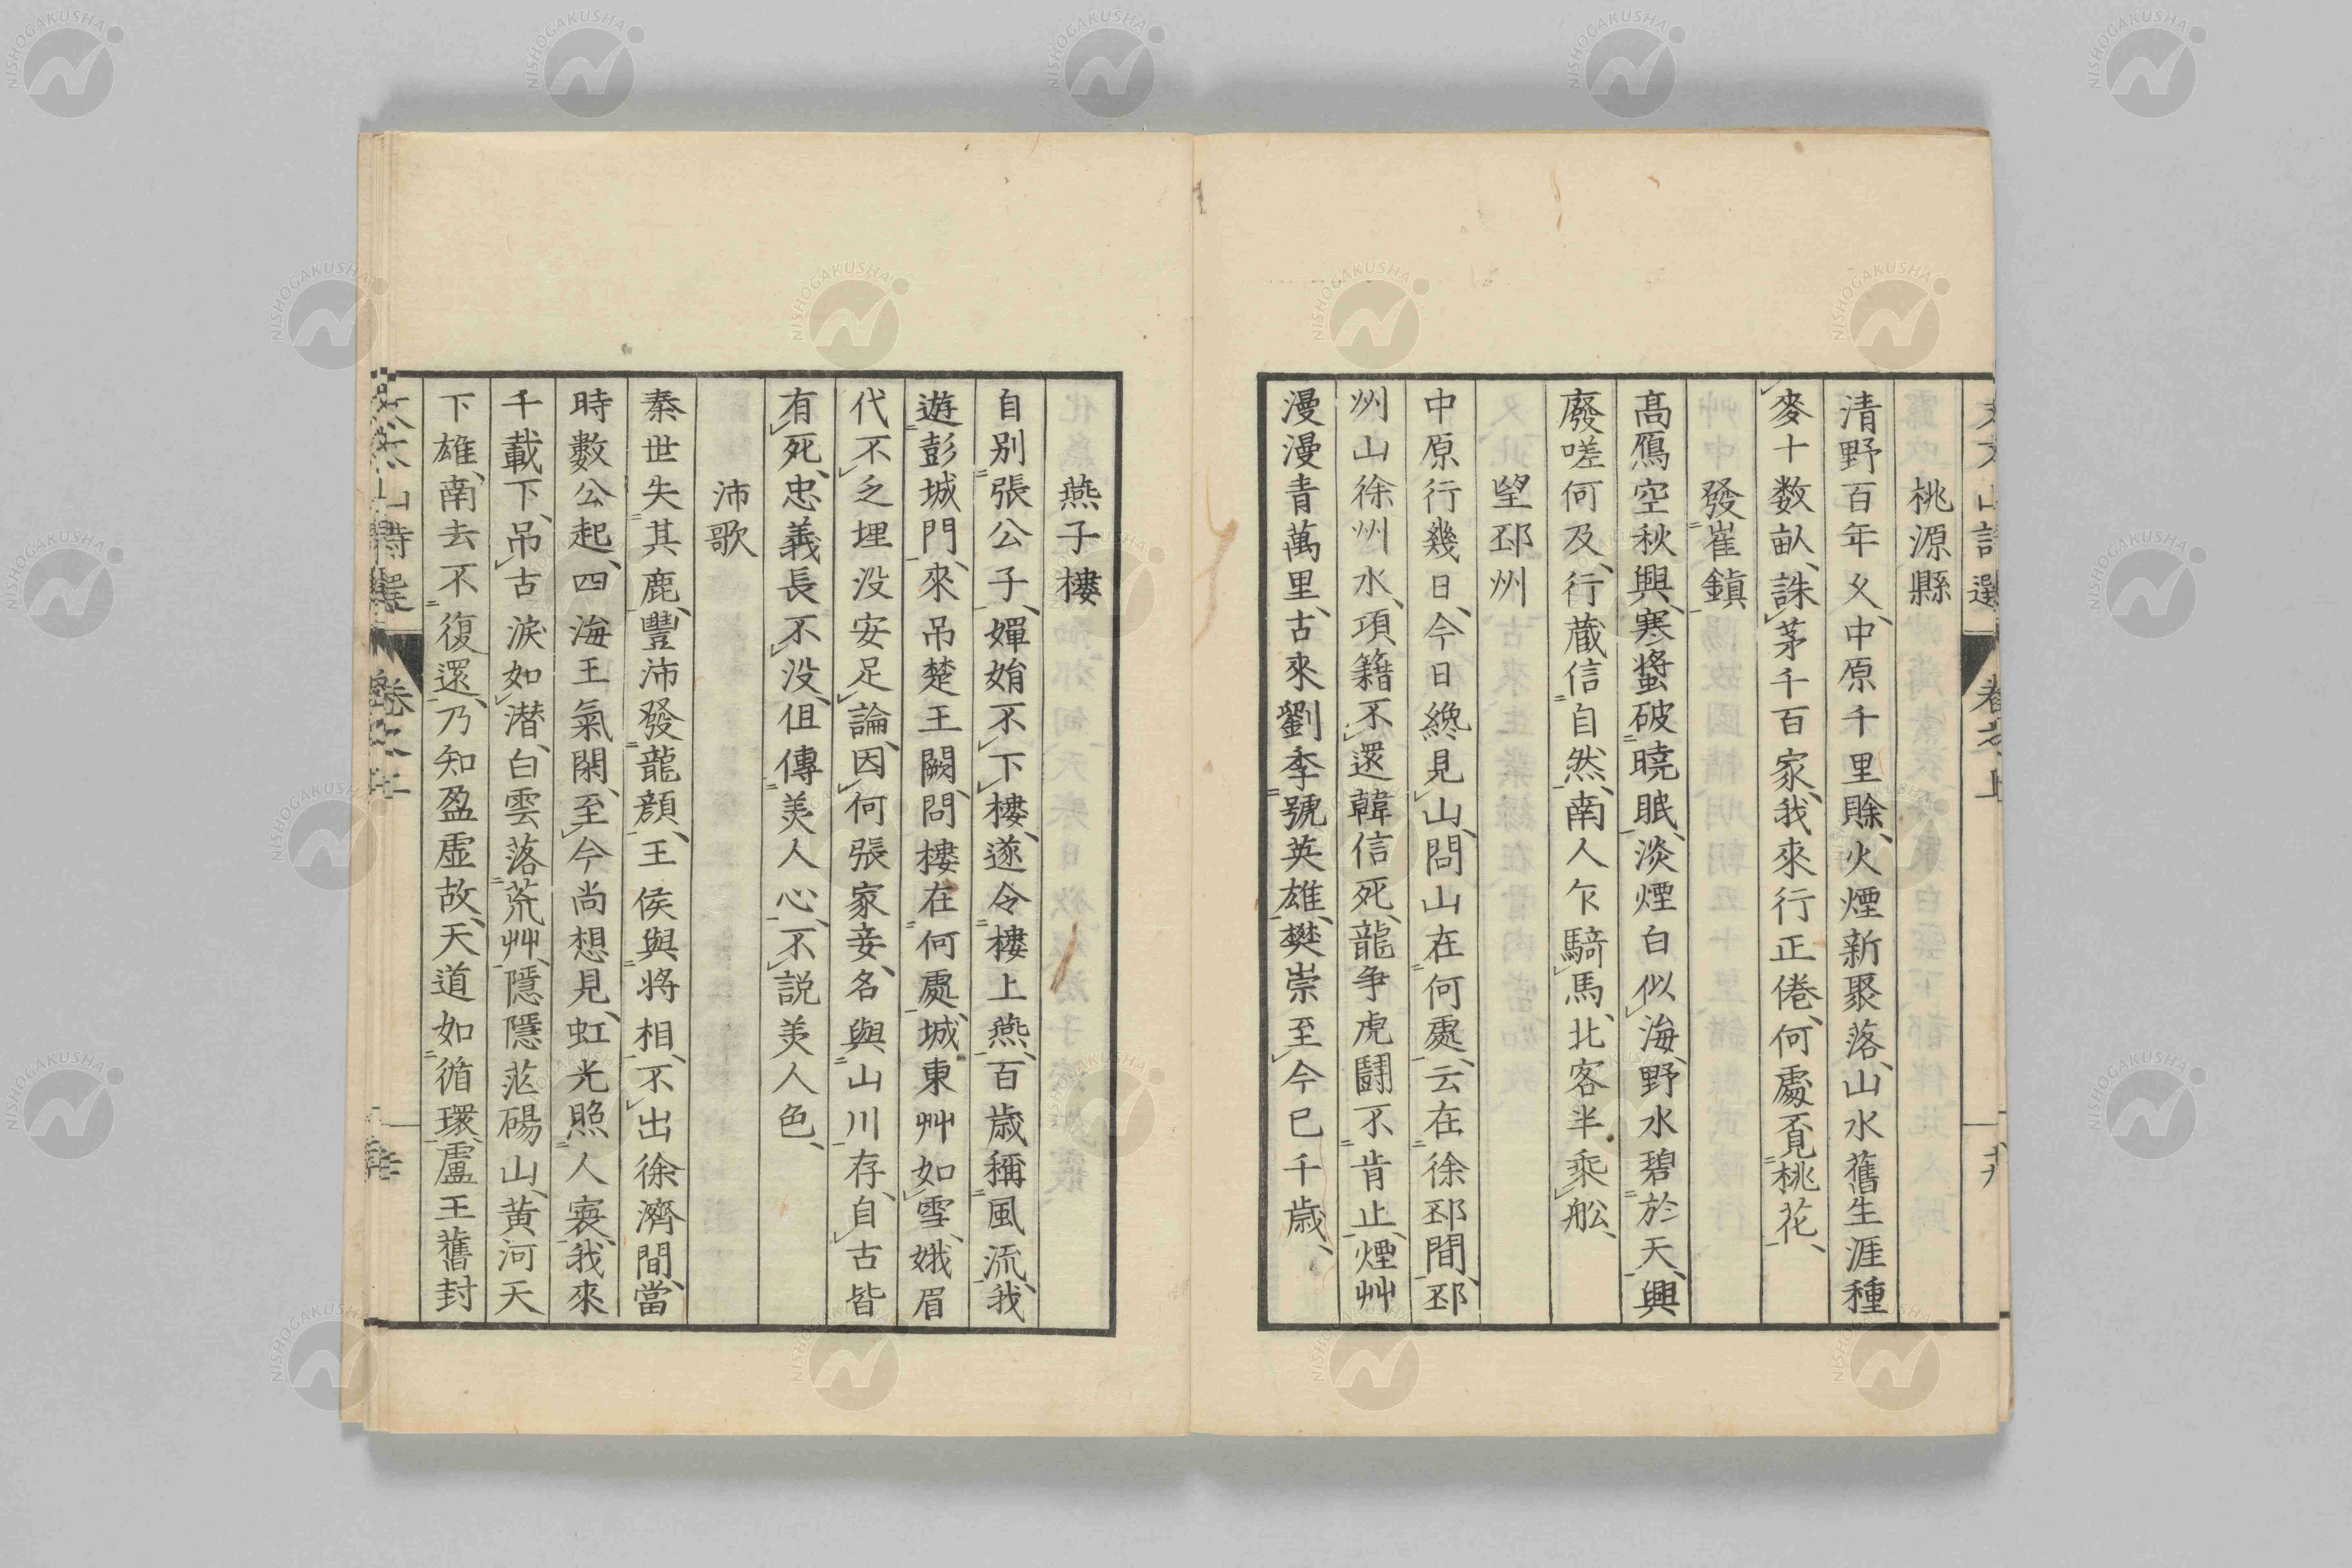 桃源縣
清野百年乆、中原千里賖、火煙新聚落、山水舊生涯、種
麥十数畝、誅茅千百家、我來行正倦、何處覔桃花、
發崔鎮
高鴈空秋興、寒螀破曉眠、淡煙白似海、野水碧於天、興
廢嗟何及、行蔵信自然、南人乍騎馬、北客半乘舩、
望邳州
中原行幾日、今日纔見山、問山在何處、云在徐邳間、邳
州山徐州水、項籍不還韓信死、龍争虎鬪不肯止、煙艸
漫漫青萬里、古來劉季號英雄、樊崇至今已千歳、
燕子樓
自别張公子、嬋娟不下樓、遂令樓上燕、百歳稱風流、我
遊彭城門、來吊楚王闕、問樓在何處、城東艸如雪、娥眉
代不乏埋没安足論、因何張家妾、名與山川存、自古皆
有死、忠義長不没、但傳美人心、不説美人色、
沛歌
秦世失其鹿、豐沛發龍顔、王侯與将相、不出徐濟間、當
時數公起、四海王氣閑、至今尚想見、虹光照人寰、我來
千載下、吊古淚如潸、白雲落荒艸、隱隱茫碭山、黄河天
下雄、南去不復還、乃知盈虚故、天道如循環、盧王舊封